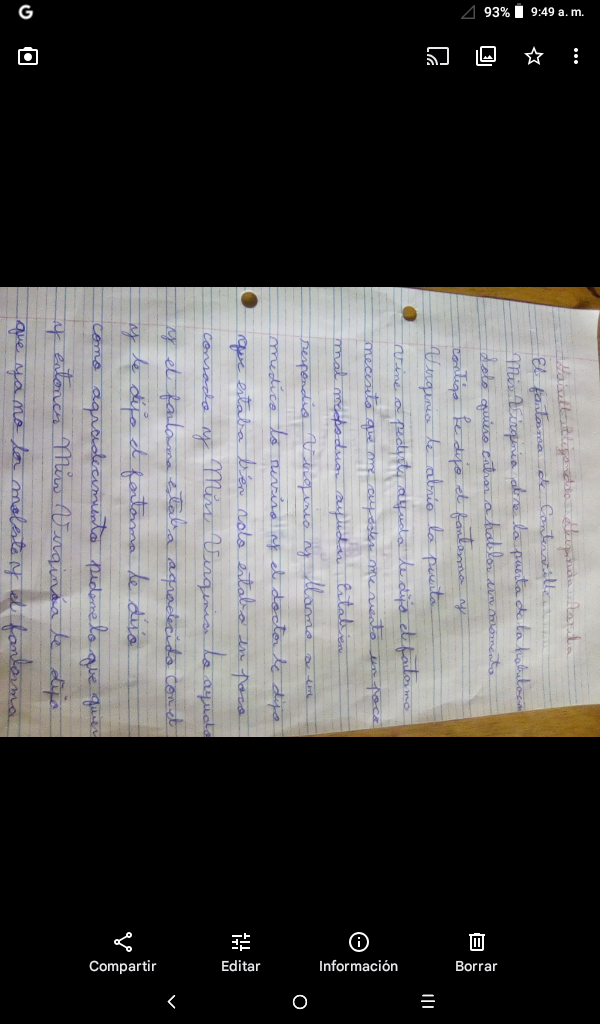 93% 9:49 a. m.
El fantasma de Canterville
Miss Virginia abre la puerta de la habitación
Solo quiero entrar a hablar un momento
contigo le dijo el fantasma y
Virginia le abrio la puerta
Vine a pedirte ayuda le dijo el fantasma
necesito que me ayuden me siento un poco
mal me podrian ayudar Estabien
respondio Virginia y llamo a un
medico lo reviso y el doctor le dijo
que estaba bien solo estaba un poco
cansado y Miss Virginia lo ayudo
y el fantama estaba agradecido con el
y le dijo el fantasma le dijo
como agradecimiento pidemelo que quier
y entonces Miss Virginia le dijo
que ya no los moleste y el fantasma
Compartir
Editar
Información
Borrar